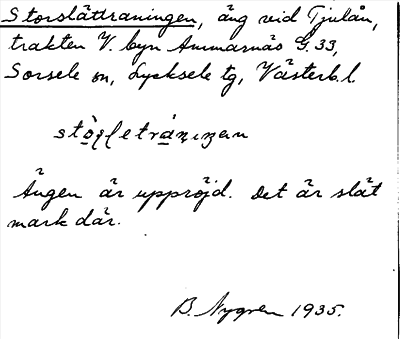 Storslättraningen, äng vid Tjulån,
trakten V. byn Ammarnäs G. 33,
Sorsele sn, Lycksele tg, Västerb. l.
Ängen är uppröjd. Det är slät
mark där.
B. Nygren 1935.